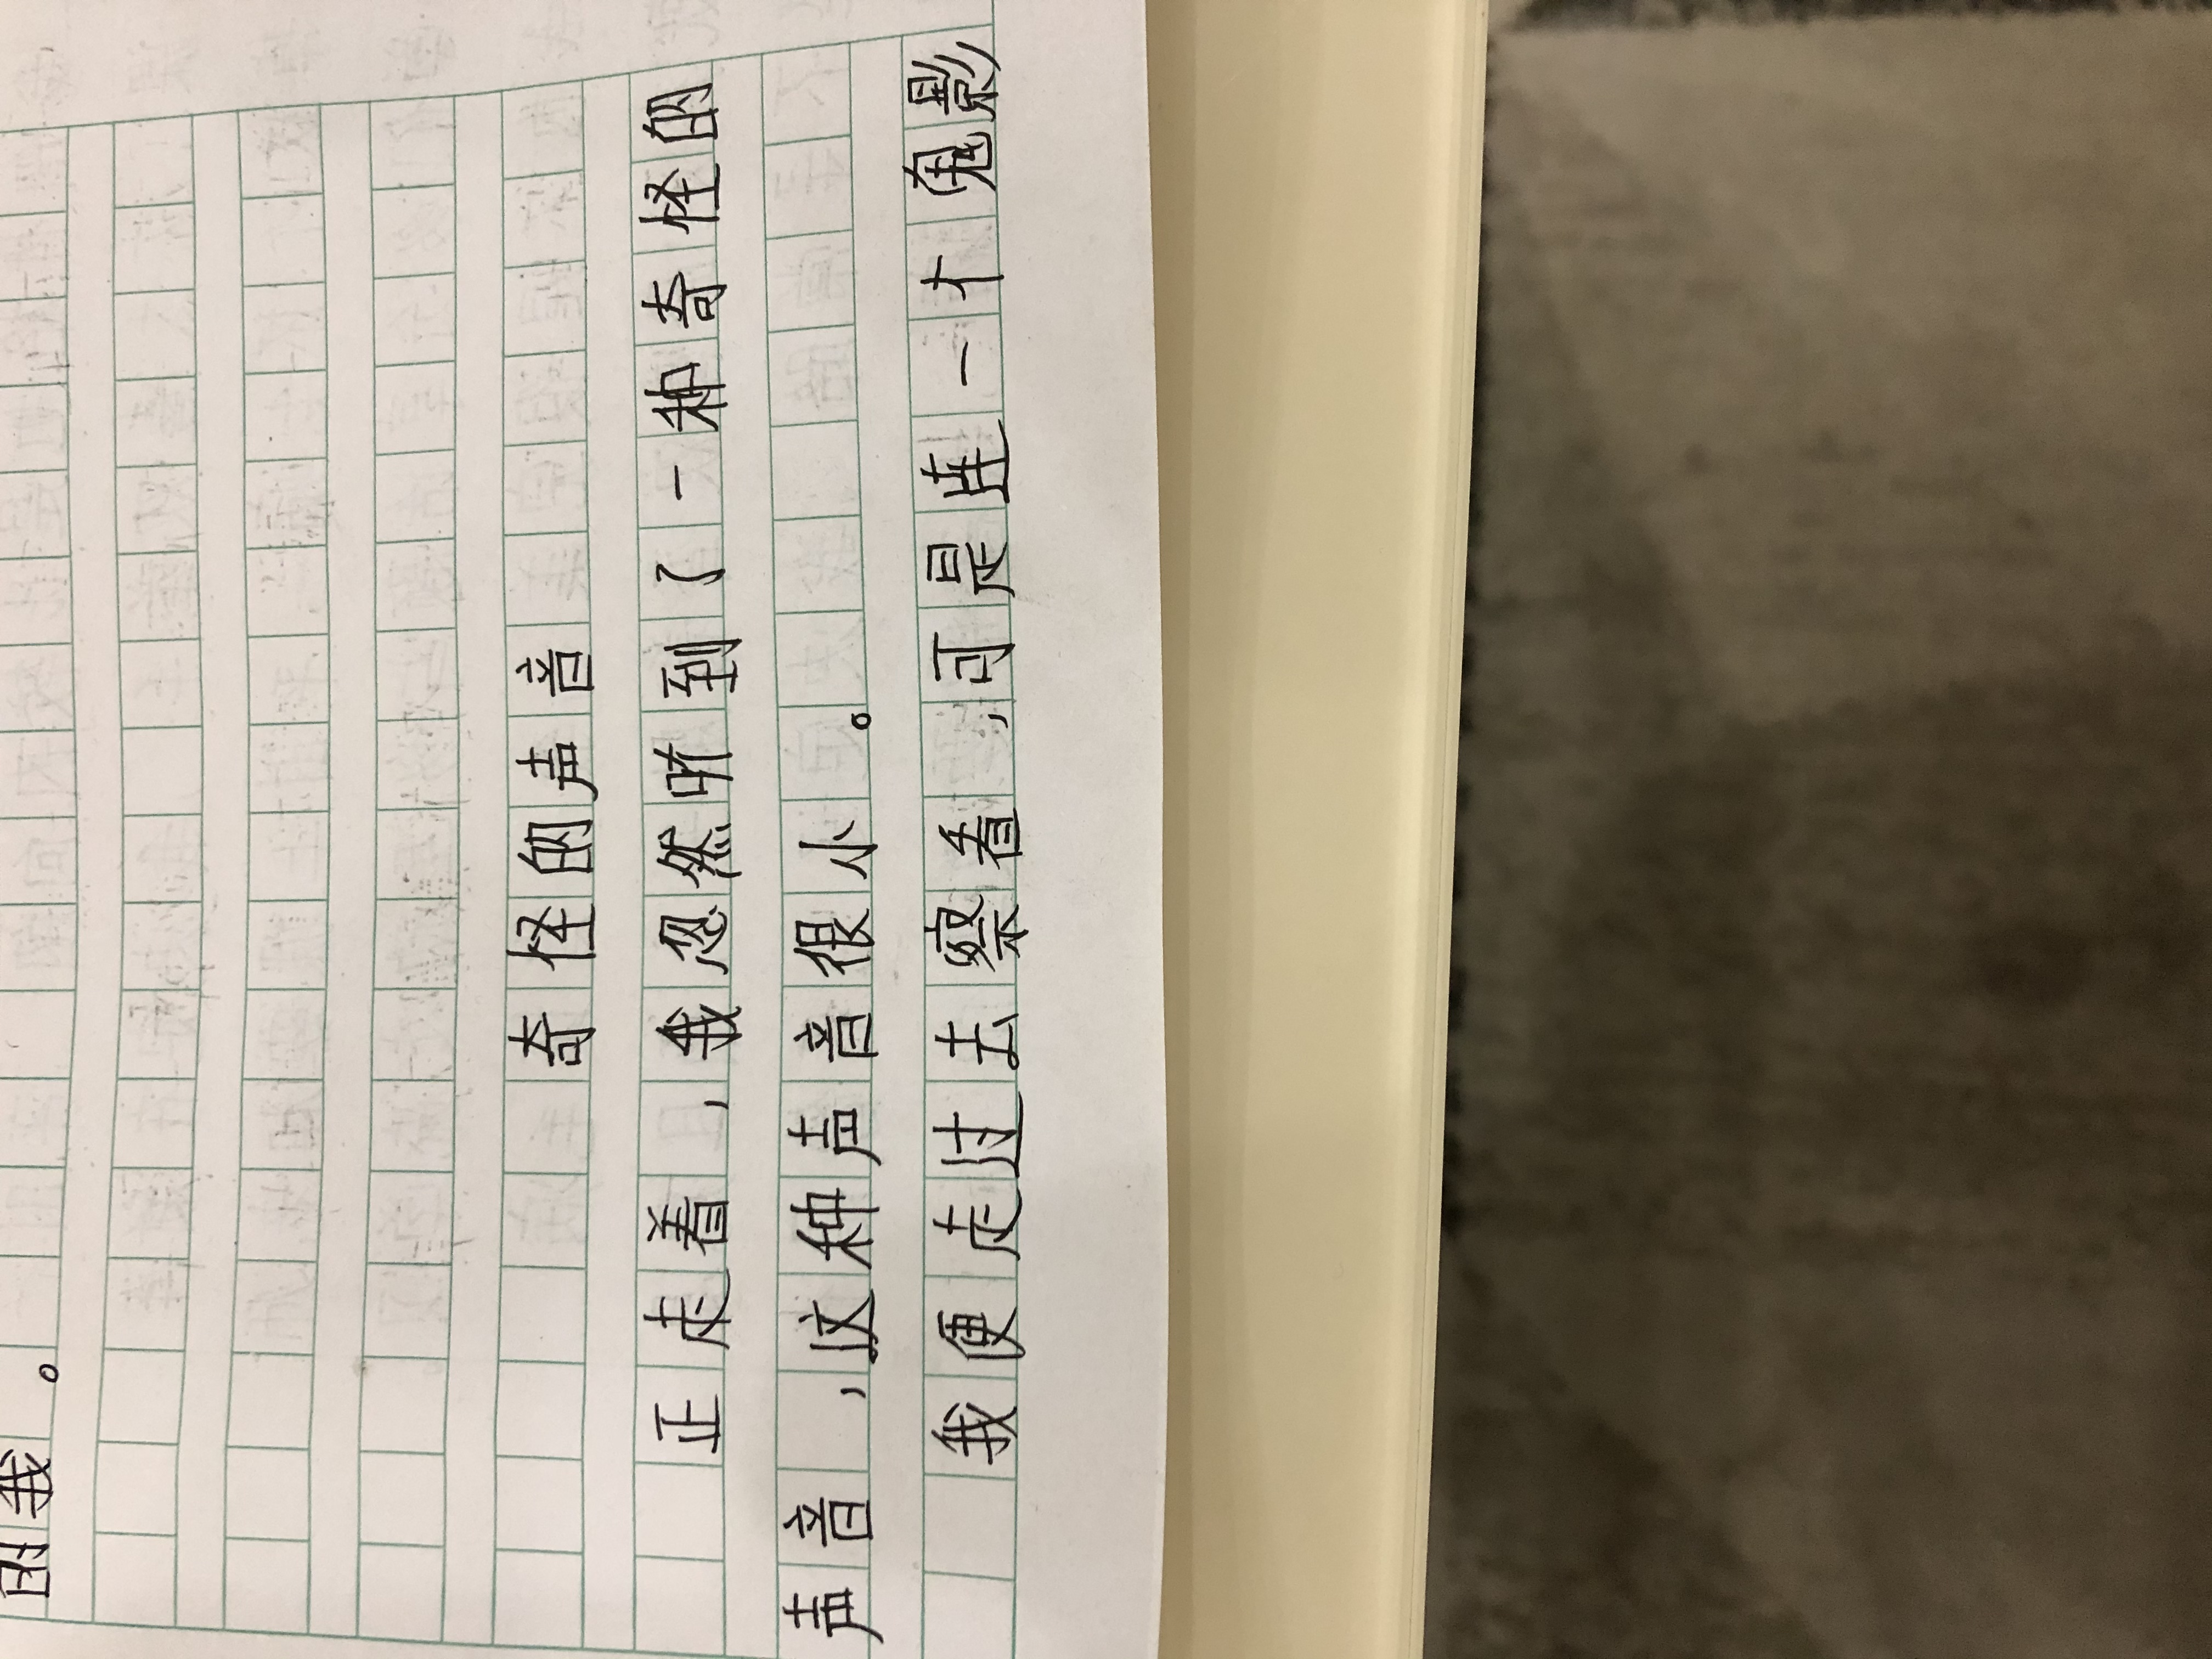 我。
奇怪的声音
正走着，我忽然听到了一种奇怪的
声音，这种声音很小。
我便走过去察看，可是连一个鬼影